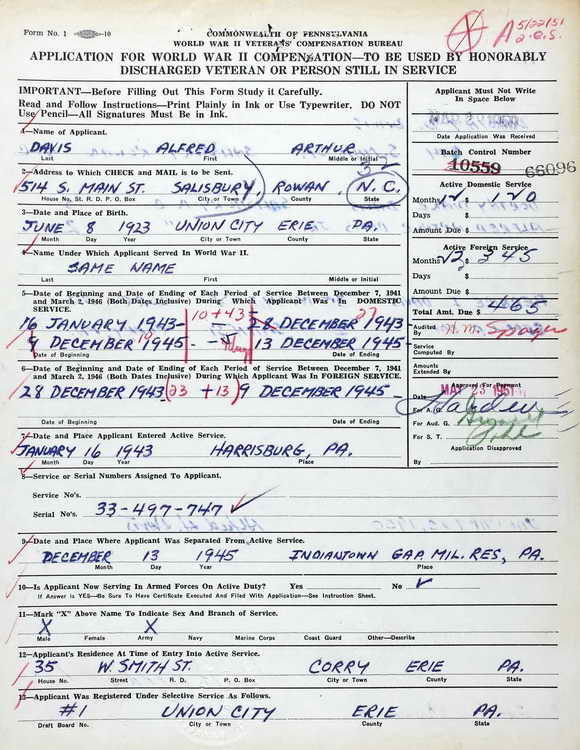 Form No. 1 -10
COMMONWEALTH OF PENNSYLVANIA
WORLD WAR II VETERANS' COMPENSATION BUREAU
A 5/22/51
APPLICATION FOR WORLD WAR II COMPENSATION—TO BE USED BY HONORABLY
DISCHARGED VETERAN OR PERSON STILL IN SERVICE
IMPORTANT—Before Filling Out This Form Study it Carefully.
Read and Follow Instructions—Print Plainly in Ink or Use Typewriter. DO NOT
Use Pencil—All Signatures Must Be in Ink.
1—Name of Applicant.
DAVIS ALFRED ARTHUR
Last First Middle or Initial
2—Address to Which CHECK and MAIL is to be Sent.
32
514 S. MAIN ST. SALISBURY, ROWAN, N.C.
House No, St. R.D. P.O. Box City or Town County State
3—Date and Place of Birth.
JUNE 8 1923 UNION CITY ERIE PA.
Month Day Year City or Town County State
4—Name Under Which Applicant Served In World War II.
SAME NAME
Last First Middle or Initial
5—Date of Beginning and Date of Ending of Each Period of Service Between December 7, 1941
and March 2, 1946 (Both Dates Inclusive) During Which Applicant Was In DOMESTIC
SERVICE.
10+43 27
16 JANUARY 1943- 28 DECEMBER 1943
9 DECEMBER 1945- 10 13 DECEMBER 1945-
Date of Beginning Date of Ending
6—Date of Beginning and Date of Ending of Each Period of Service Between December 7, 1941
and March 2, 1946 (Both Dates Inclusive) During Which Applicant Was In FOREIGN SERVICE.
28 DECEMBER 1943 23 +13 9 DECEMBER 1945-
Date of Beginning Date of Ending
7—Date and Place Applicant Entered Active Service.
JANUARY 16 1943 HARRISBURG, PA.
Month Day Year Place
8—Service or Serial Numbers Assigned To Applicant.
Service No's.
Serial No's. 33-497-747
9—Date and Place Where Applicant Was Separated From Active Service.
DECEMBER 13 1945 INDIANTOWN GAP. MIL. RES, PA.
Month Day Year Place
10—Is Applicant Now Serving In Armed Forces On Active Duty? Yes No ✓
If Answer is YES—Be Sure To Have Certificate Executed And Filed With Application—See Instruction Sheet.
11—Mark "X" Above Name To Indicate Sex and Branch of Service.
X X
Male Female Army Navy Marine Corps Coast Guard Other—Describe
12—Applicant's Residence At Time of Entry Into Active Service.
35 W. SMITH ST. CORRY ERIE PA.
House No. Street R. D. P. O. Box City or Town County State
13—Applicant Was Registered Under Selective Service As Follows.
#1 UNION CITY ERIE PA.
Draft Board No. City or Town County State
Applicant Must Not Write
In Space Below
Date Application Was Received
Batch Control Number
10559 66096
Active Domestic Service
Months 12 $ 120
Days
Amount Due $
Active Foreign Service
Months 23 $ 345
Days
Amount Due $
Total Amt. Due $ 465
Audited By
Service
Computed By
Amounts
Extended By
Approved For Payment
Date MAY 23 1951
For A. G.
For Aud. G.
For S. T.
Application Disapproved
By